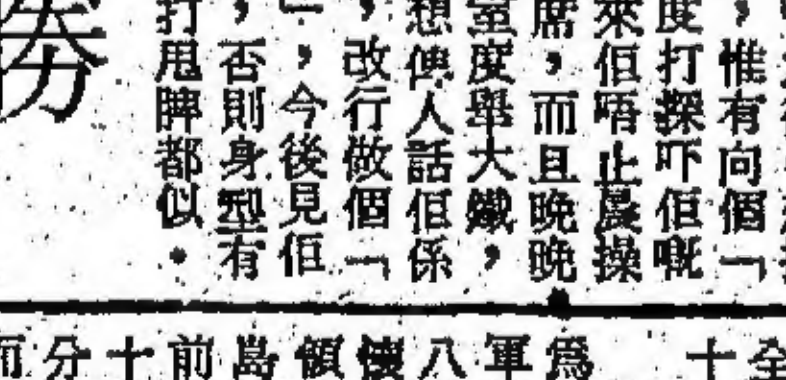 ，惟有向個「
度打探吓佢嘅
來佢唔止晨操
席，而且晚晚
室度舉大鐵，
想俾人話佢係
，改行做個「
」，今後見佢
，否則身型有
打甩脾都似。
勝
全十　為軍八懷領島前十分而